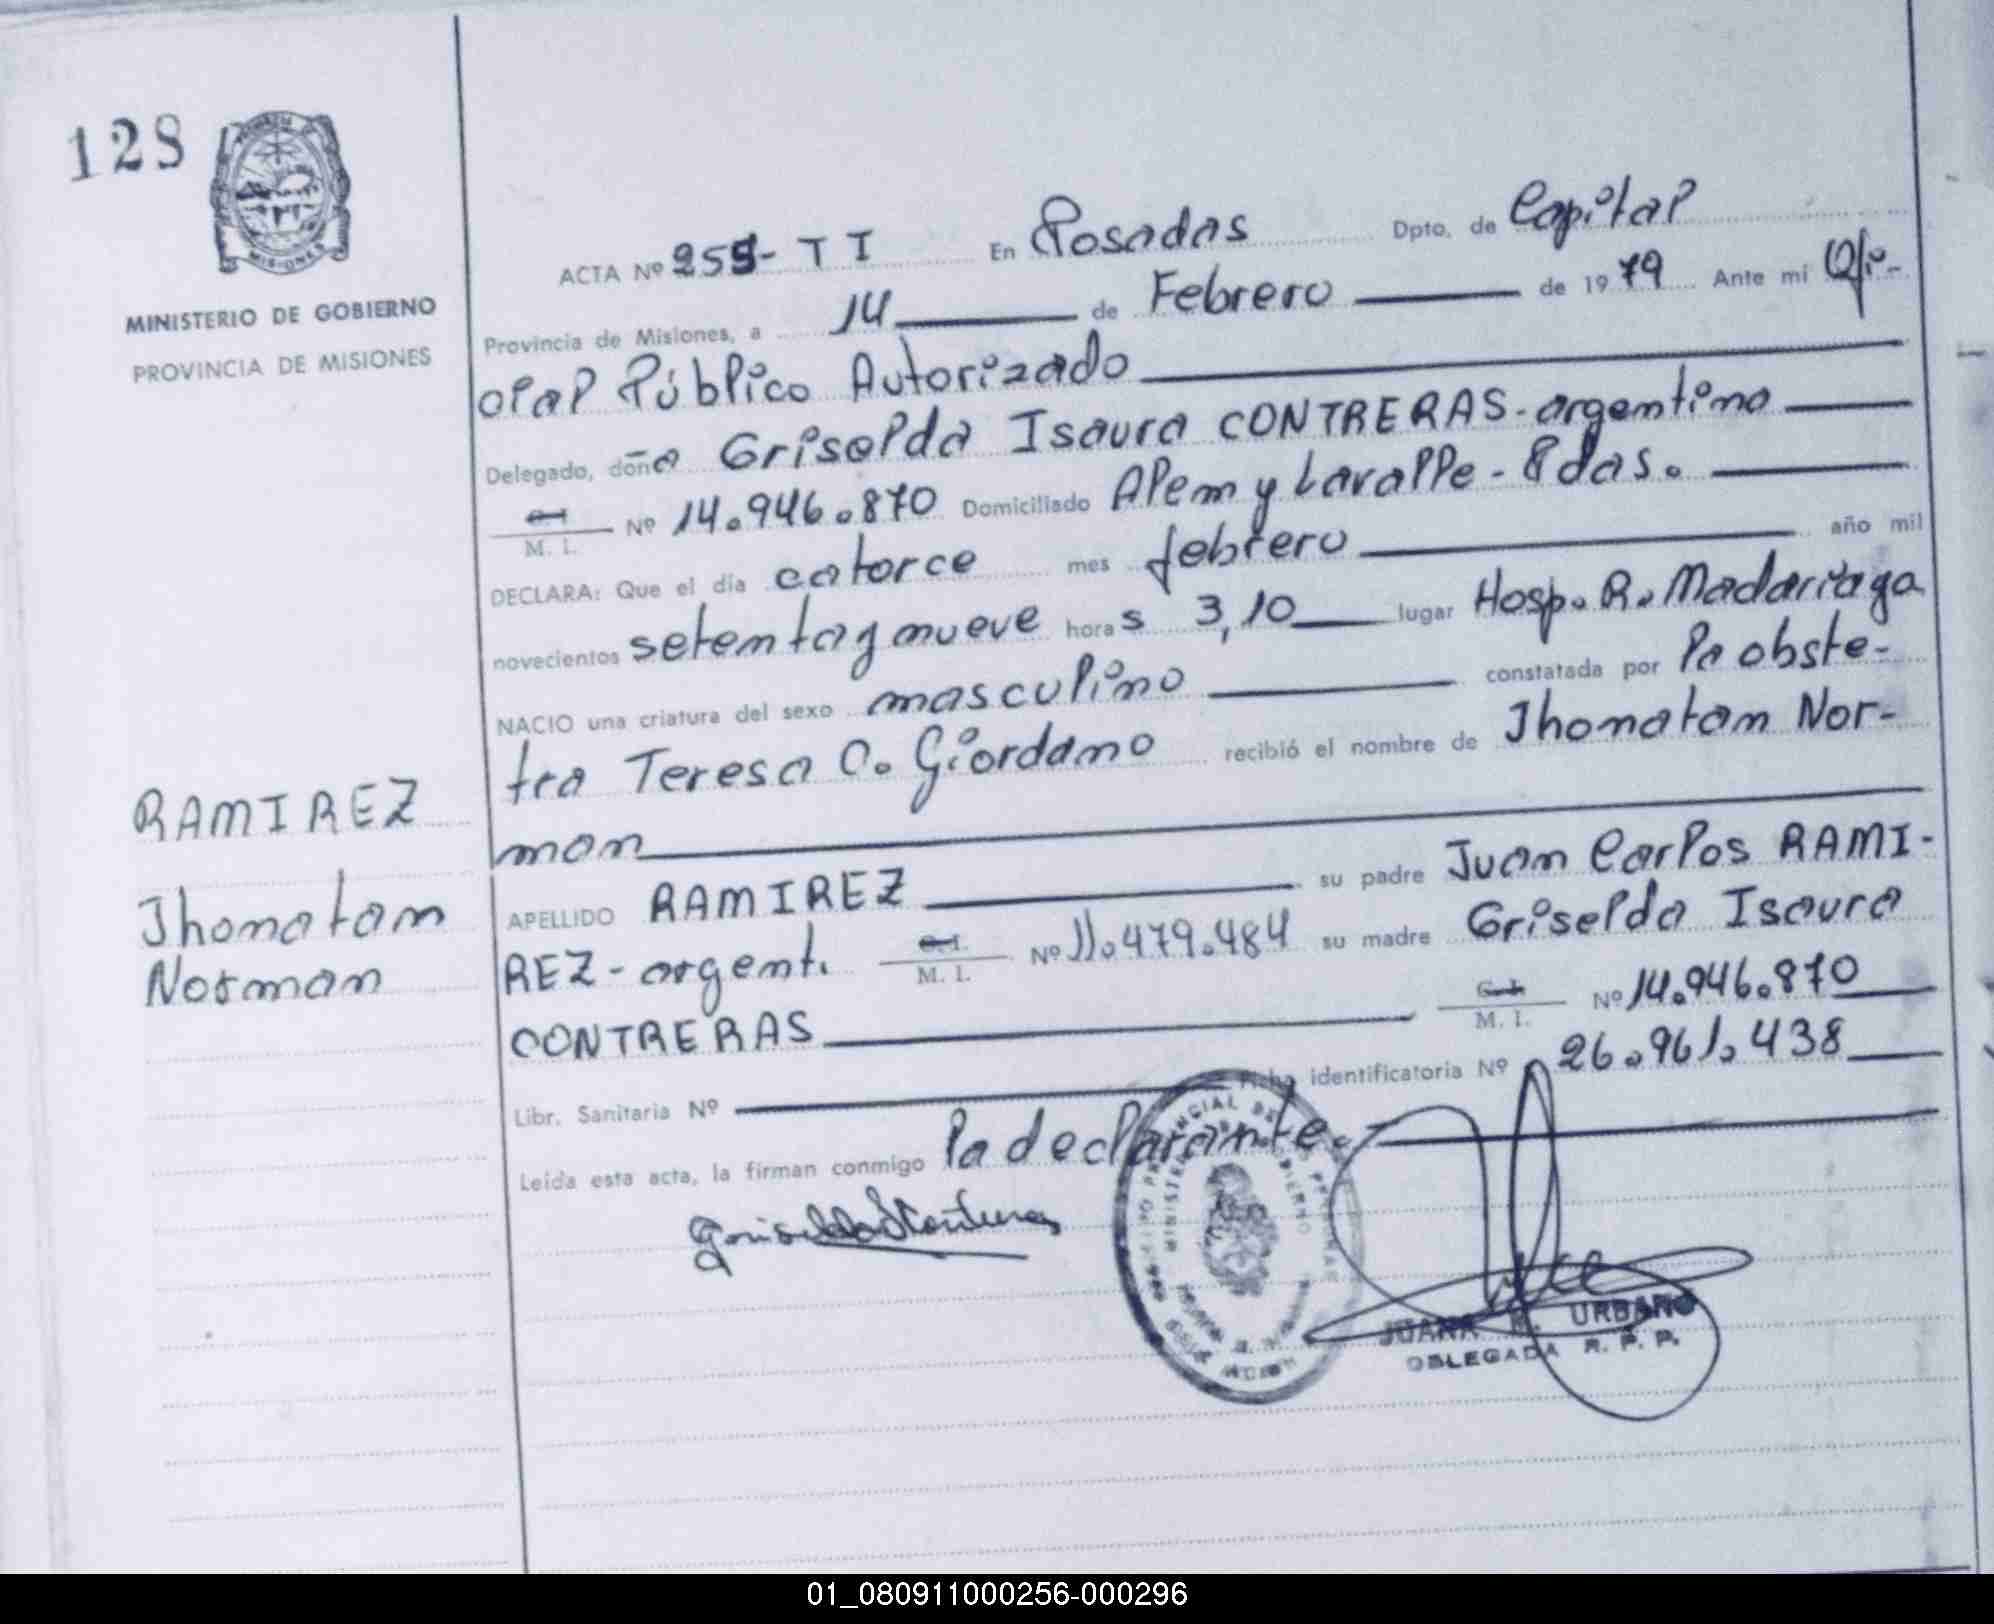 128
MISIONES
MINISTERIO DE GOBIERNO
PROVINCIA DE MISIONES
ACTA Nº 255- T I En Posadas Dpto. de Capital
Provincia de Misiones, a 14 de Febrero de 1979 Ante mi Ofi-
cial Público Autorizado
Delegado, doña Griselda Isaura CONTRERAS-argentina
C.I. M. I. Nº 14.946.870 Domiciliado Alem y Lavalle - Pdas.
DECLARA: Que el día catorce mes febrero año mil
novecientos setenta y nueve horas 3,10 lugar Hosp. R. Madariaga
NACIO una criatura del sexo masculino constatada por la obste-
tra Teresa C. Giordano recibió el nombre de Jhonatan Nor-
man
APELLIDO RAMIREZ su padre Juan Carlos RAMI-
REZ - argent. C.I. M. I. Nº 11.479.484 su madre Griselda Isaura
CONTRERAS C.I. M. I. Nº 14.946.870
Libr. Sanitaria Nº Ficha identificatoria Nº 26.961.438
Leída esta acta, la firman conmigo la declarante.
RAMIREZ
Jhonatan
Norman
Griselda I Contreras
JUANA URBANO
DELEGADA R. P. P.
01_080911000256-000296